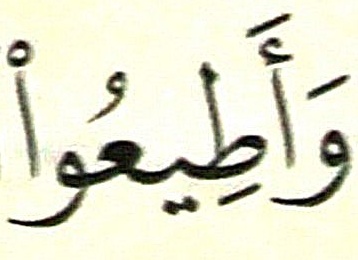 وَأَطِيعُواْ